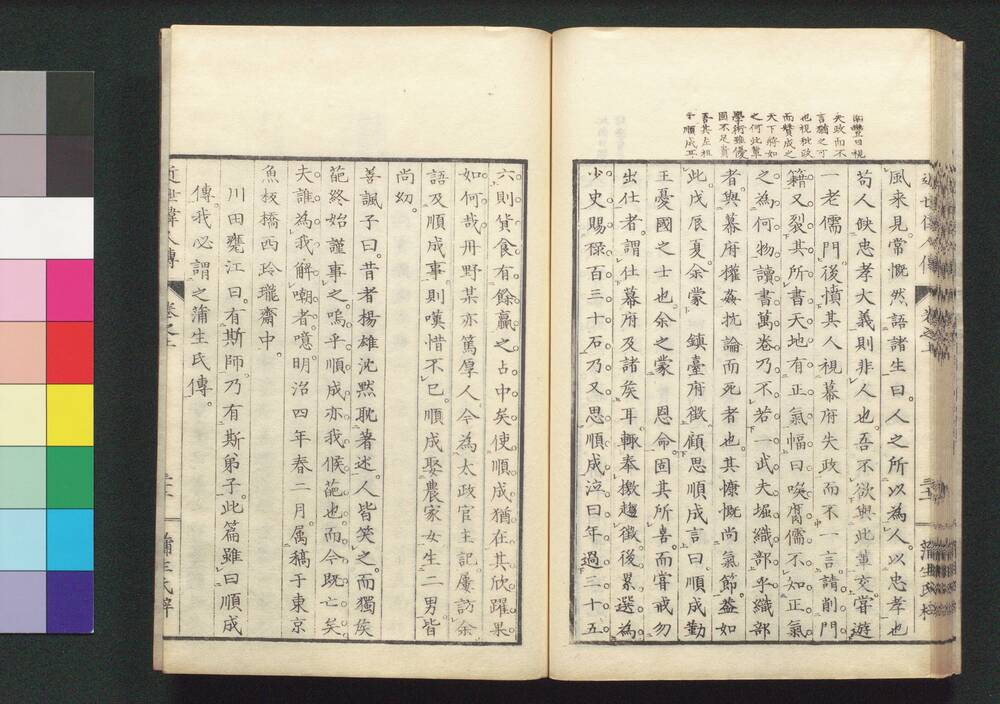 南豐曰視
失政而不
言猶之可
也視秕政
而贊成之
天下將如
之何此輩
學術雖優
固不足貴
吾其左袒
乎順成耳
風来見常慨然語諸生曰人之所以為人以忠孝也
苟人缺忠孝大義則非人也吾不欲與此輩交嘗遊
一老儒門後憤其人視幕府失政而不一言請削門
籍又裂其所書天地有正氣幅曰唉腐儒不如正氣
之為何物讀書萬卷乃不若一武夫堀織部乎織部
者與幕府權姦抗論而死者也其慷慨尚氣節蓋如
此戊辰夏余蒙 鎮臺府徴顧思順成言曰順成勤
王憂國之士也余之蒙 恩命固其所喜而嘗戒勿
出仕者謂仕幕府及諸侯耳輙奉檄趨徴後累遷為
少史賜禄百三十石乃又思順成泣曰年過三十五
六則貨食有餘贏之占中矣使順成猶在其欣躍果
如何哉舟野某亦篤厚人今為太政官主記屢訪余
語及順成事則嘆惜不已順成娶農家女生二男皆
尚幼
善諷子曰昔者楊雄沈默耽著述人皆笑之而獨矦
葩終始謹事之嗚乎順成亦我候葩也而今既亡矣
夫誰為我解嘲者噫明治四年春二月属稿于東京
魚板橋西玲瓏齋中
川田甕江曰有斯師乃有斯弟子此篇雖曰順成
傳我必謂之蒲生氏傳
近世偉人傳 卷之上